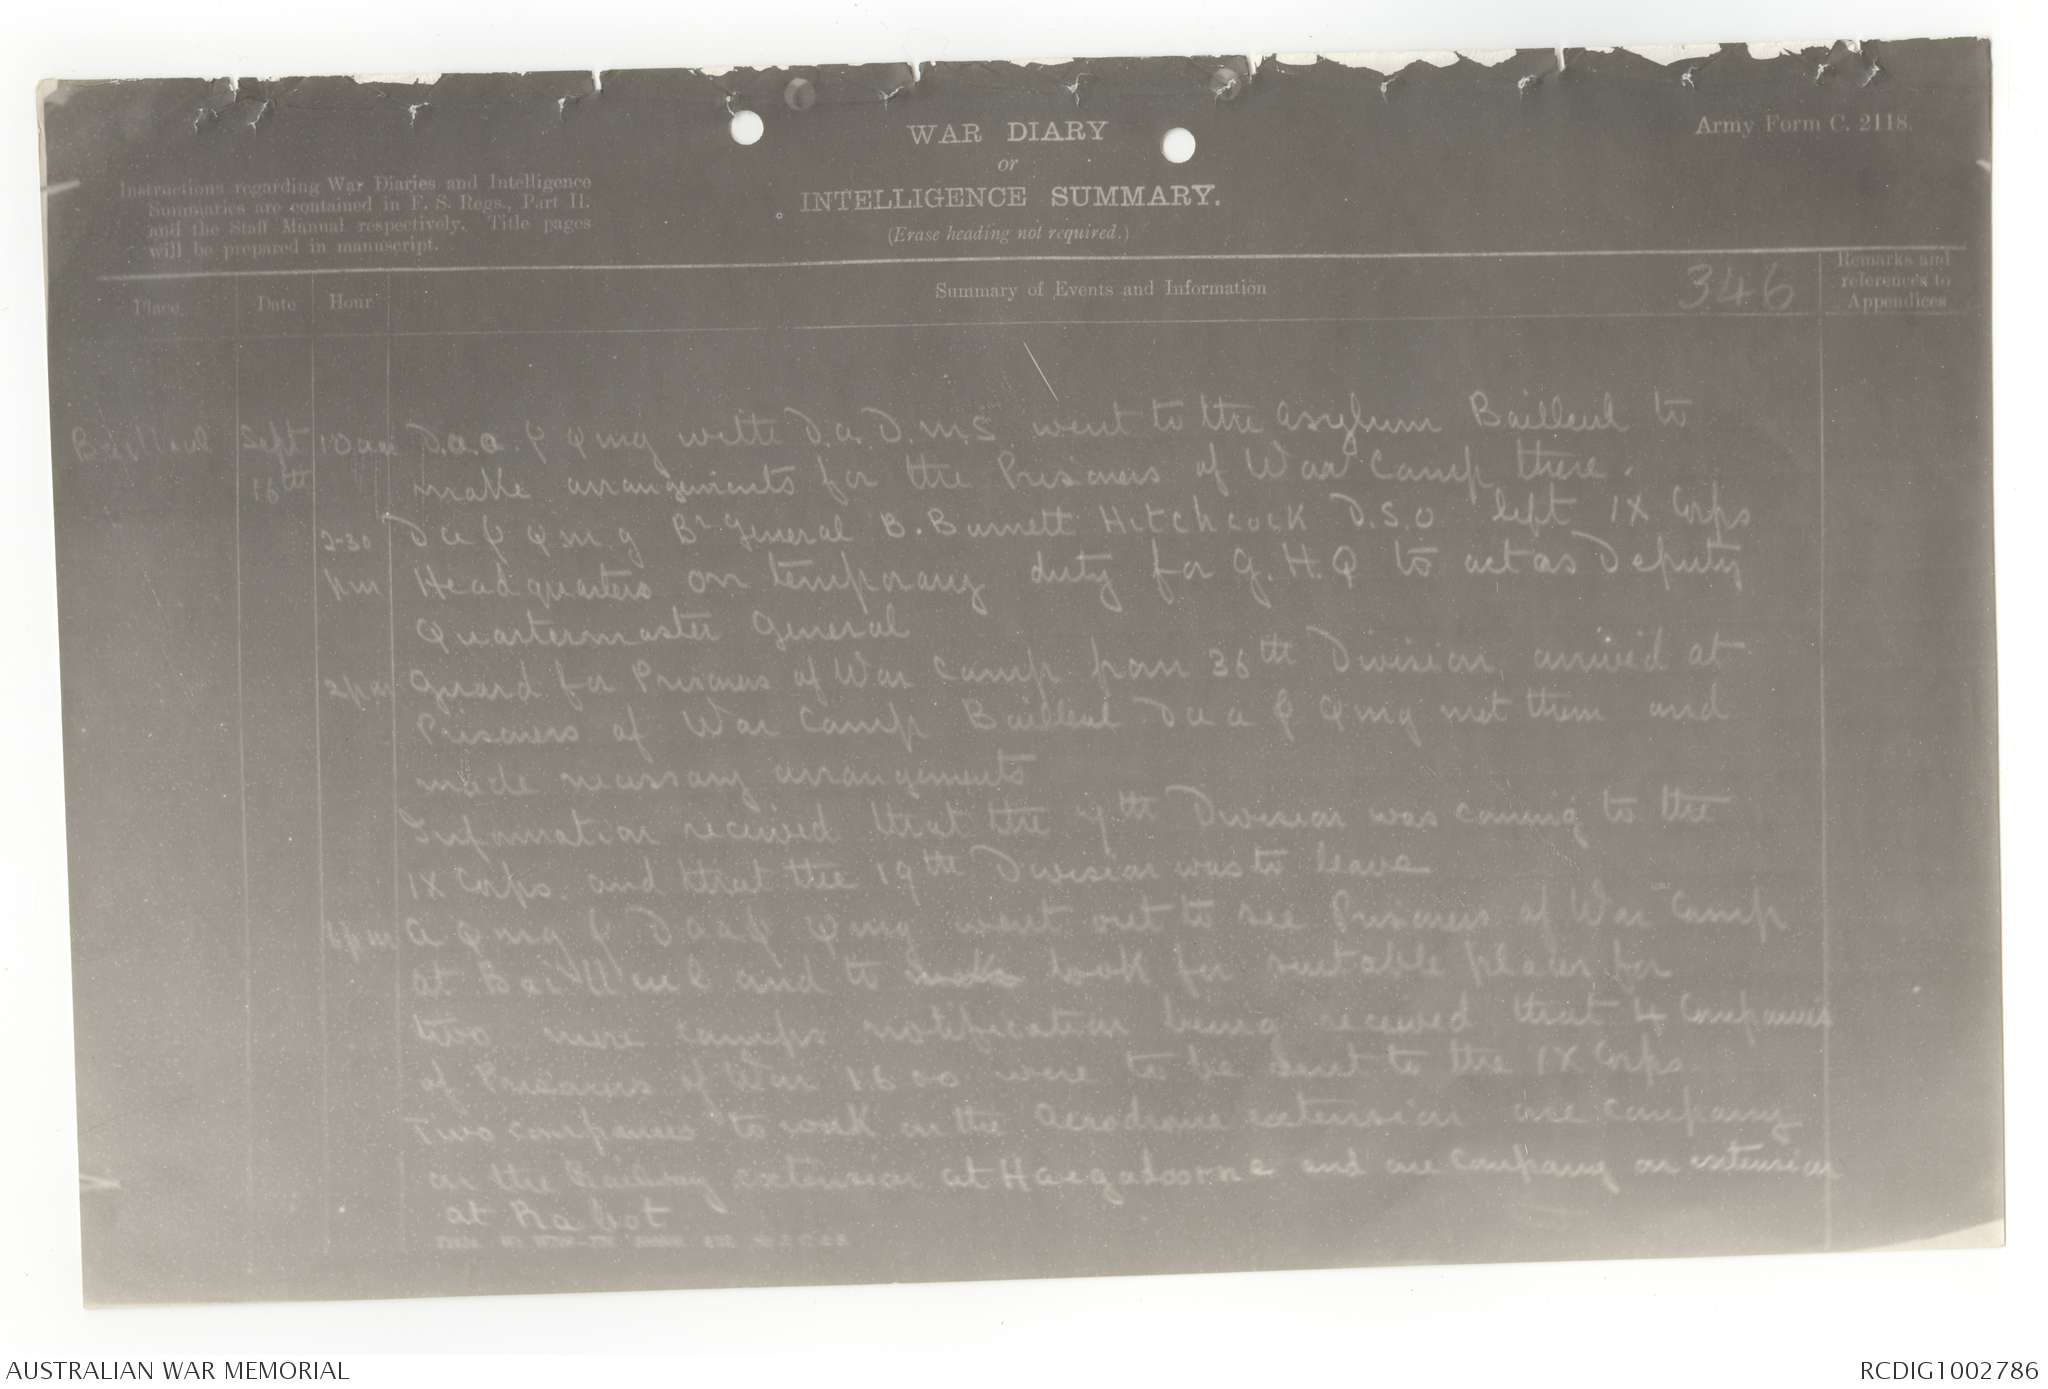 WAR DIARY
or
INTELLIGENCE SUMMARY.
(Erase heading not required.)
Army Form C. 2118.
Instructions regarding War Diaries and Intelligence
Summaries are contained in F. S. Regs., Part II.
and the Staff Manual respectively. Title pages
will be prepared in manuscript.
Place Date Hour Summary of Events and Information 346 Remarks and
references to
Appendices
Bailleul Sept 10am D.a.a. & Qmg with D.a.D.M.S. went to the Asylum Bailleul to
16th make arrangements for the Prisoners of War Camp there.
2-30 D a & Q.m.g Br General B. Burnett Hitchcock D.S.O left IX Corps
pm Headquarters on temporary duty for G.H.Q to act as Deputy
Quartermaster General
2pm Guard for Prisoners of War Camp from 36th Division arrived at
Prisoners of War Camp Bailleul D a a & Qmg met them and
made necessary arrangements
Information received that the 4th Division was coming to the
IX Corps. and that the 19th Division was to leave
A Qmg & D a a & Qmg went out to see Prisoners of War Camp
at Bailleul and to make look for suitable places for
two more camps notification being received that 4 Companies
of Prisoners of War 1600 were to be sent to the IX Corps
Two companies to work on the Aerodrome extension one company
on the Railway extension at Haegedoorne and one Company on extension
at Rabot
AUSTRALIAN WAR MEMORIAL RCDIG1002786